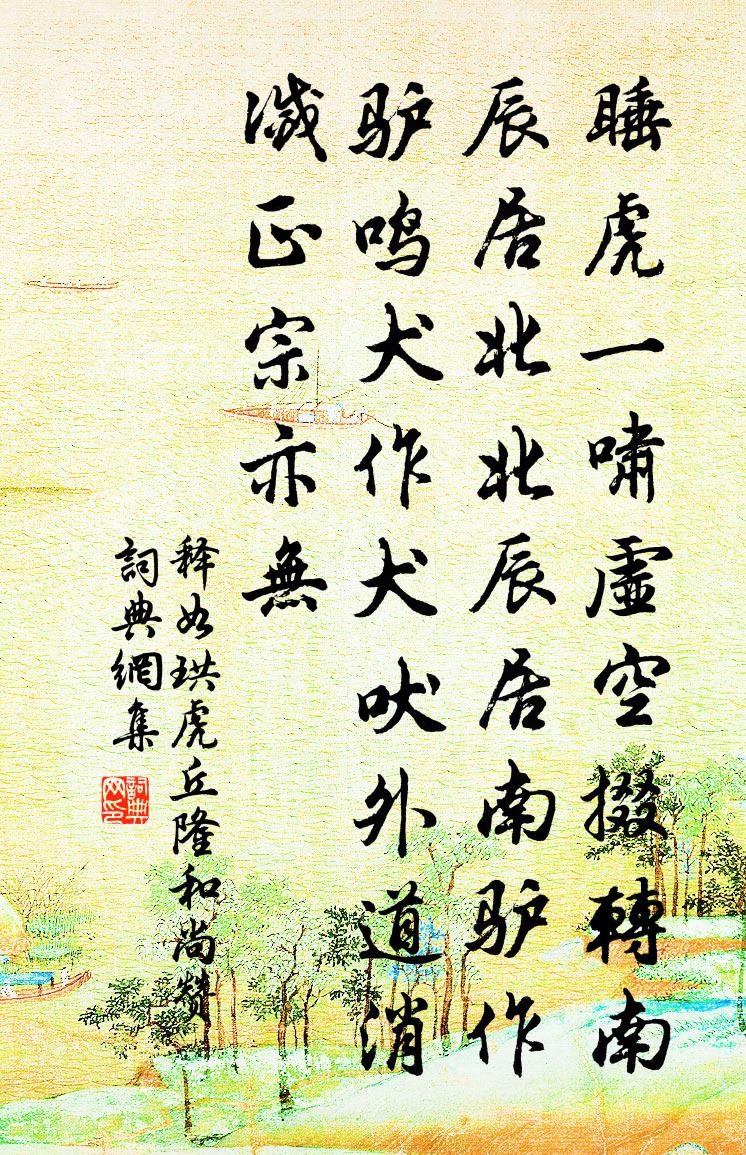 睡虎一啸虚空掇轉南
辰居北北辰居南驴作
驴鸣犬作犬吠外道消
滅正宗亦無
释如珙虎丘隆和尚赞
詞典網集
詞典
网印